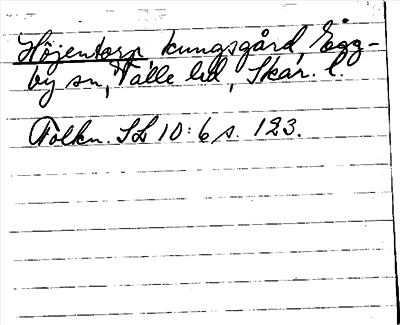 Höjentorp, kungsgård, Egg-
by sn, Valle hd, Skar. l.
Tolkn. SL 10:6 s. 123.